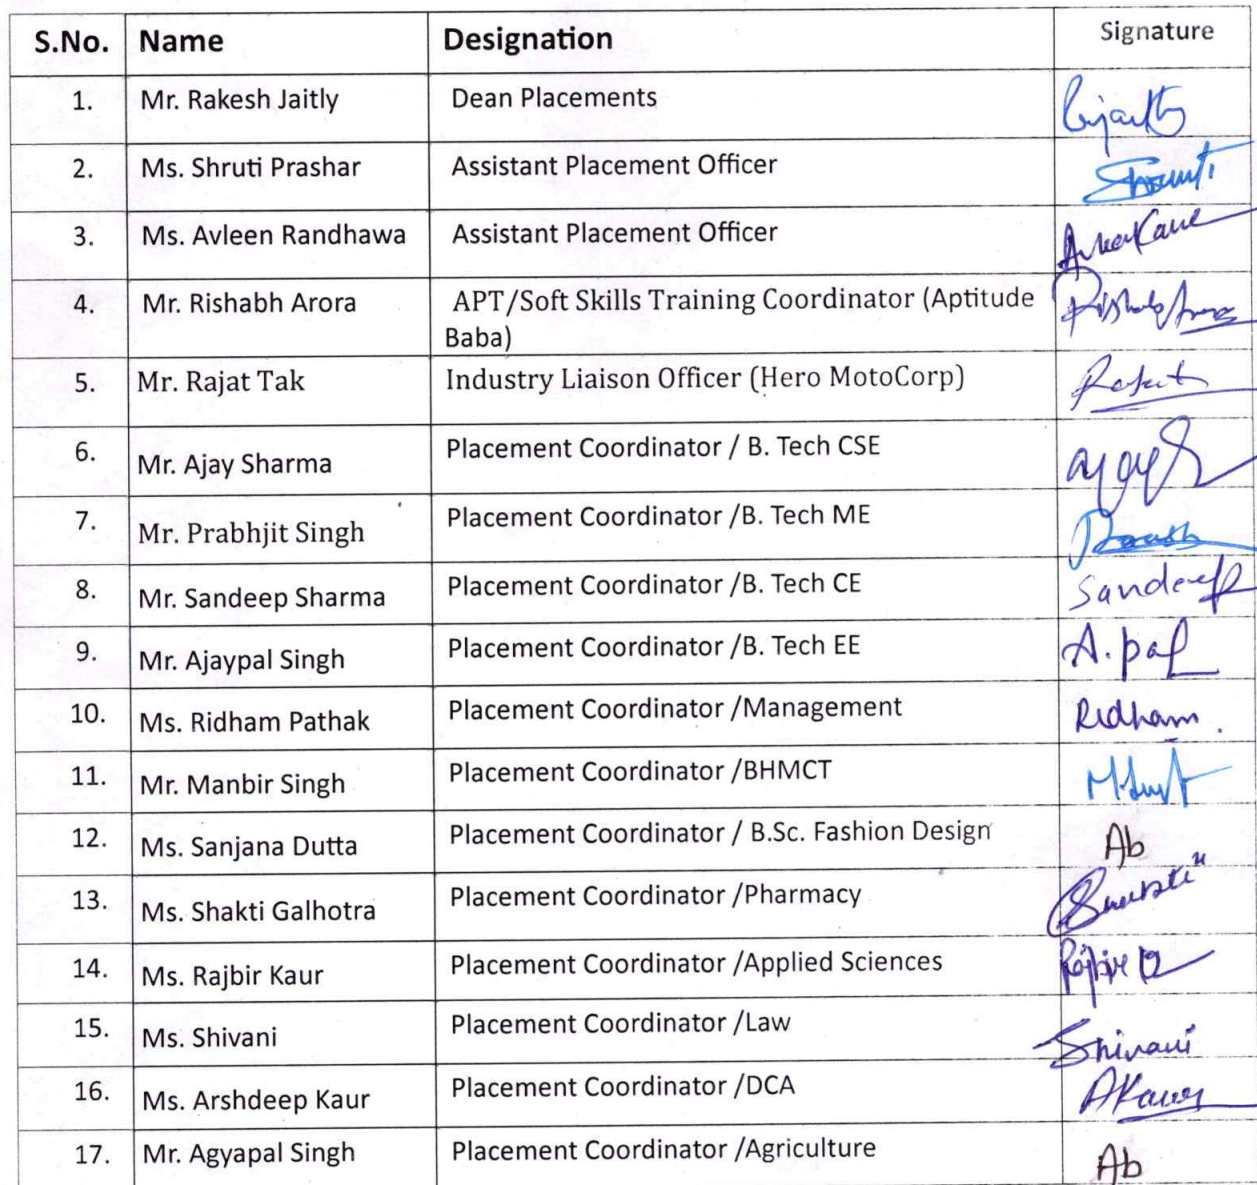 S.No. Name Designation Signature
1. Mr. Rakesh Jaitly Dean Placements
2. Ms. Shruti Prashar Assistant Placement Officer
3. Ms. Avleen Randhawa Assistant Placement Officer
4. Mr. Rishabh Arora APT/Soft Skills Training Coordinator (Aptitude
Baba)
5. Mr. Rajat Tak Industry Liaison Officer (Hero MotoCorp)
6. Mr. Ajay Sharma Placement Coordinator / B. Tech CSE
7. Mr. Prabhjit Singh Placement Coordinator /B. Tech ME
8. Mr. Sandeep Sharma Placement Coordinator /B. Tech CE Sandeep
9. Mr. Ajaypal Singh Placement Coordinator /B. Tech EE A.pal
10. Ms. Ridham Pathak Placement Coordinator /Management Ridham.
11. Mr. Manbir Singh Placement Coordinator /BHMCT
12. Ms. Sanjana Dutta Placement Coordinator / B.Sc. Fashion Design Ab
13. Ms. Shakti Galhotra Placement Coordinator /Pharmacy
14. Ms. Rajbir Kaur Placement Coordinator /Applied Sciences
15. Ms. Shivani Placement Coordinator /Law Shivani
16. Ms. Arshdeep Kaur Placement Coordinator /DCA AKaur
17. Mr. Agyapal Singh Placement Coordinator /Agriculture Ab